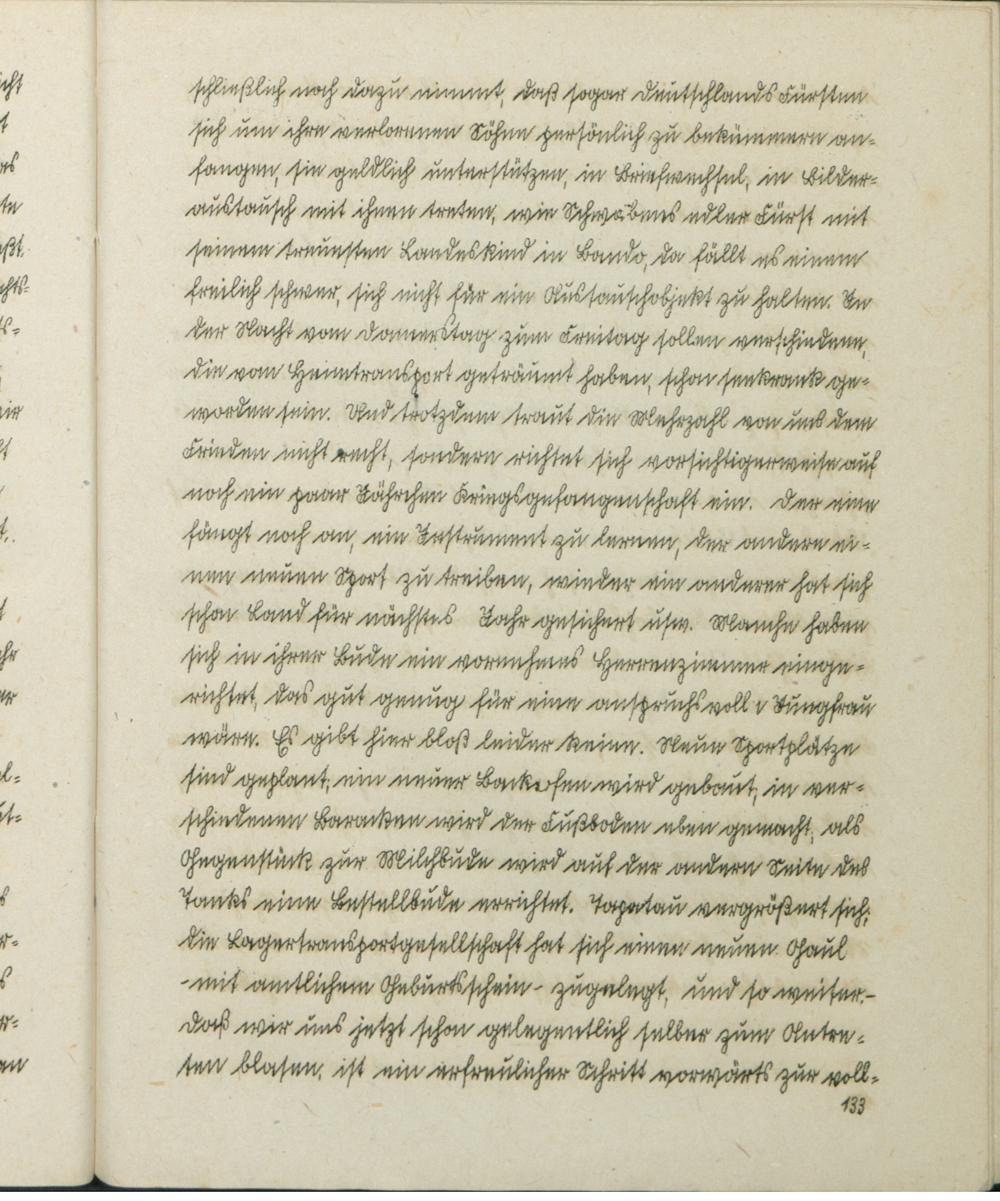 cht
t
as
te
ßt.
chts-
s-
eir
ht
t.
t
hr
er
el-
st-
s
r-
s
r-
en
schließlich noch dazu nimmt, daß sogar Deutschlands Fürsten
sich um ihre verlorenen Söhne persönlich zu bekümmern an-
fangen, sie geldlich unterstützen, in Briefwechsel, in Bilder-
austausch mit ihnen treten, wie Schwabens edler Fürst mit
seinem treuesten Landeskind in Bando, da fällt es einem
freilich schwer, sich nicht für ein Austauschobjekt zu halten. In
der Nacht vom Donnerstag zum Freitag sollen verschiedene,
die vom Heimtransport geträumt haben, schon seekrank ge-
worden sein. Und trotzdem traut die Mehrzahl von uns dem
Frieden nicht recht, sondern richtet sich vorsichtigerweise auf
noch ein paar Jährchen Kriegsgefangenschaft ein. Der eine
fängt noch an, ein Instrument zu lernen, der andere ei-
nen neuen Sport zu treiben, wieder ein anderer hat sich
schon Land für nächstes Jahr gesichert usw. Manche haben
sich in ihrer Bude ein vornehmes Herrenzimmer einge-
richtet, das gut genug für eine anspruchsvolle Jungfrau
wäre. Es gibt hier bloß leider keine. Neue Sportplätze
sind geplant; ein neuer Backofen wird gebaut; in ver-
schiedenen Baracken wird der Fußboden eben gemacht; als
Gegenstück zur Milchbude wird auf der andern Seite des
Tanks eine Bestellbude errichtet. Tapatau vergrößert sich;
die Lagertransportgesellschaft hat sich einen neuen Gaul
-mit amtlichem Geburtsschein- zugelegt, und so weiter.-
Daß wir uns jetzt schon gelegentlich selber zum Antre-
ten blasen, ist ein erfreulicher Schritt vorwärts zur voll-
133